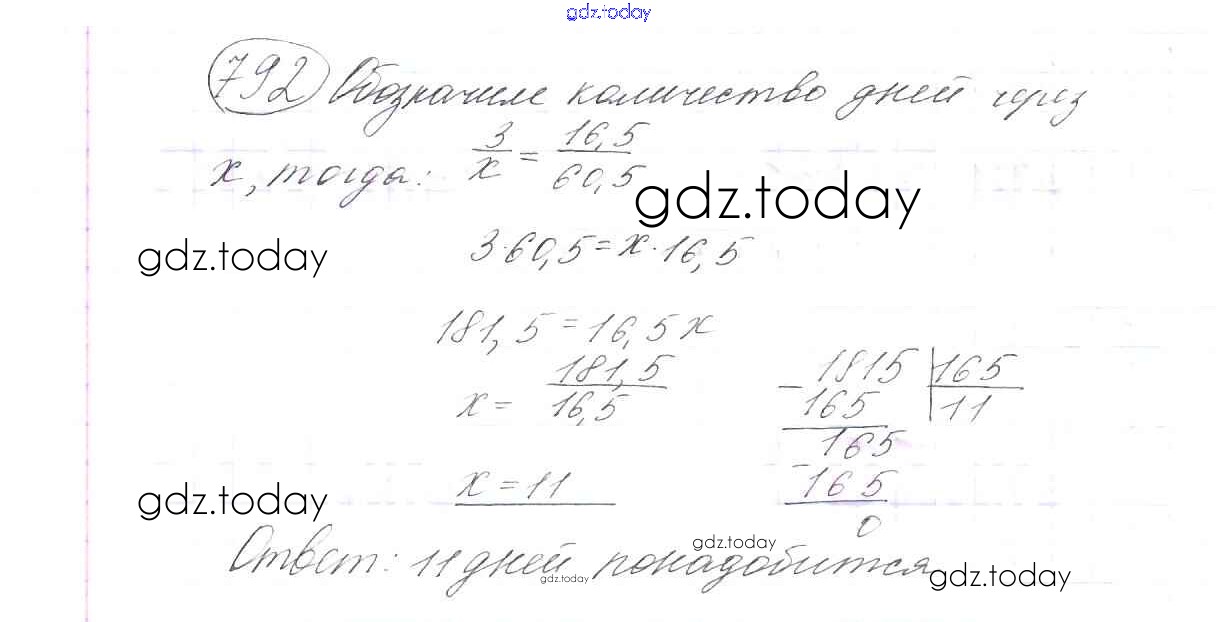 gdz.today
792 Обозначим количество дней через
x, тогда: 3/x = 16,5/60,5
gdz.today
gdz.today
3·60,5=x·16,5
181,5=16,5x
x= 181,5/16,5
1815 |165
- 165 11
165
- 165
0
x=11
gdz.today
gdz.today
Ответ: 11 дней понадобится
gdz.today
gdz.today